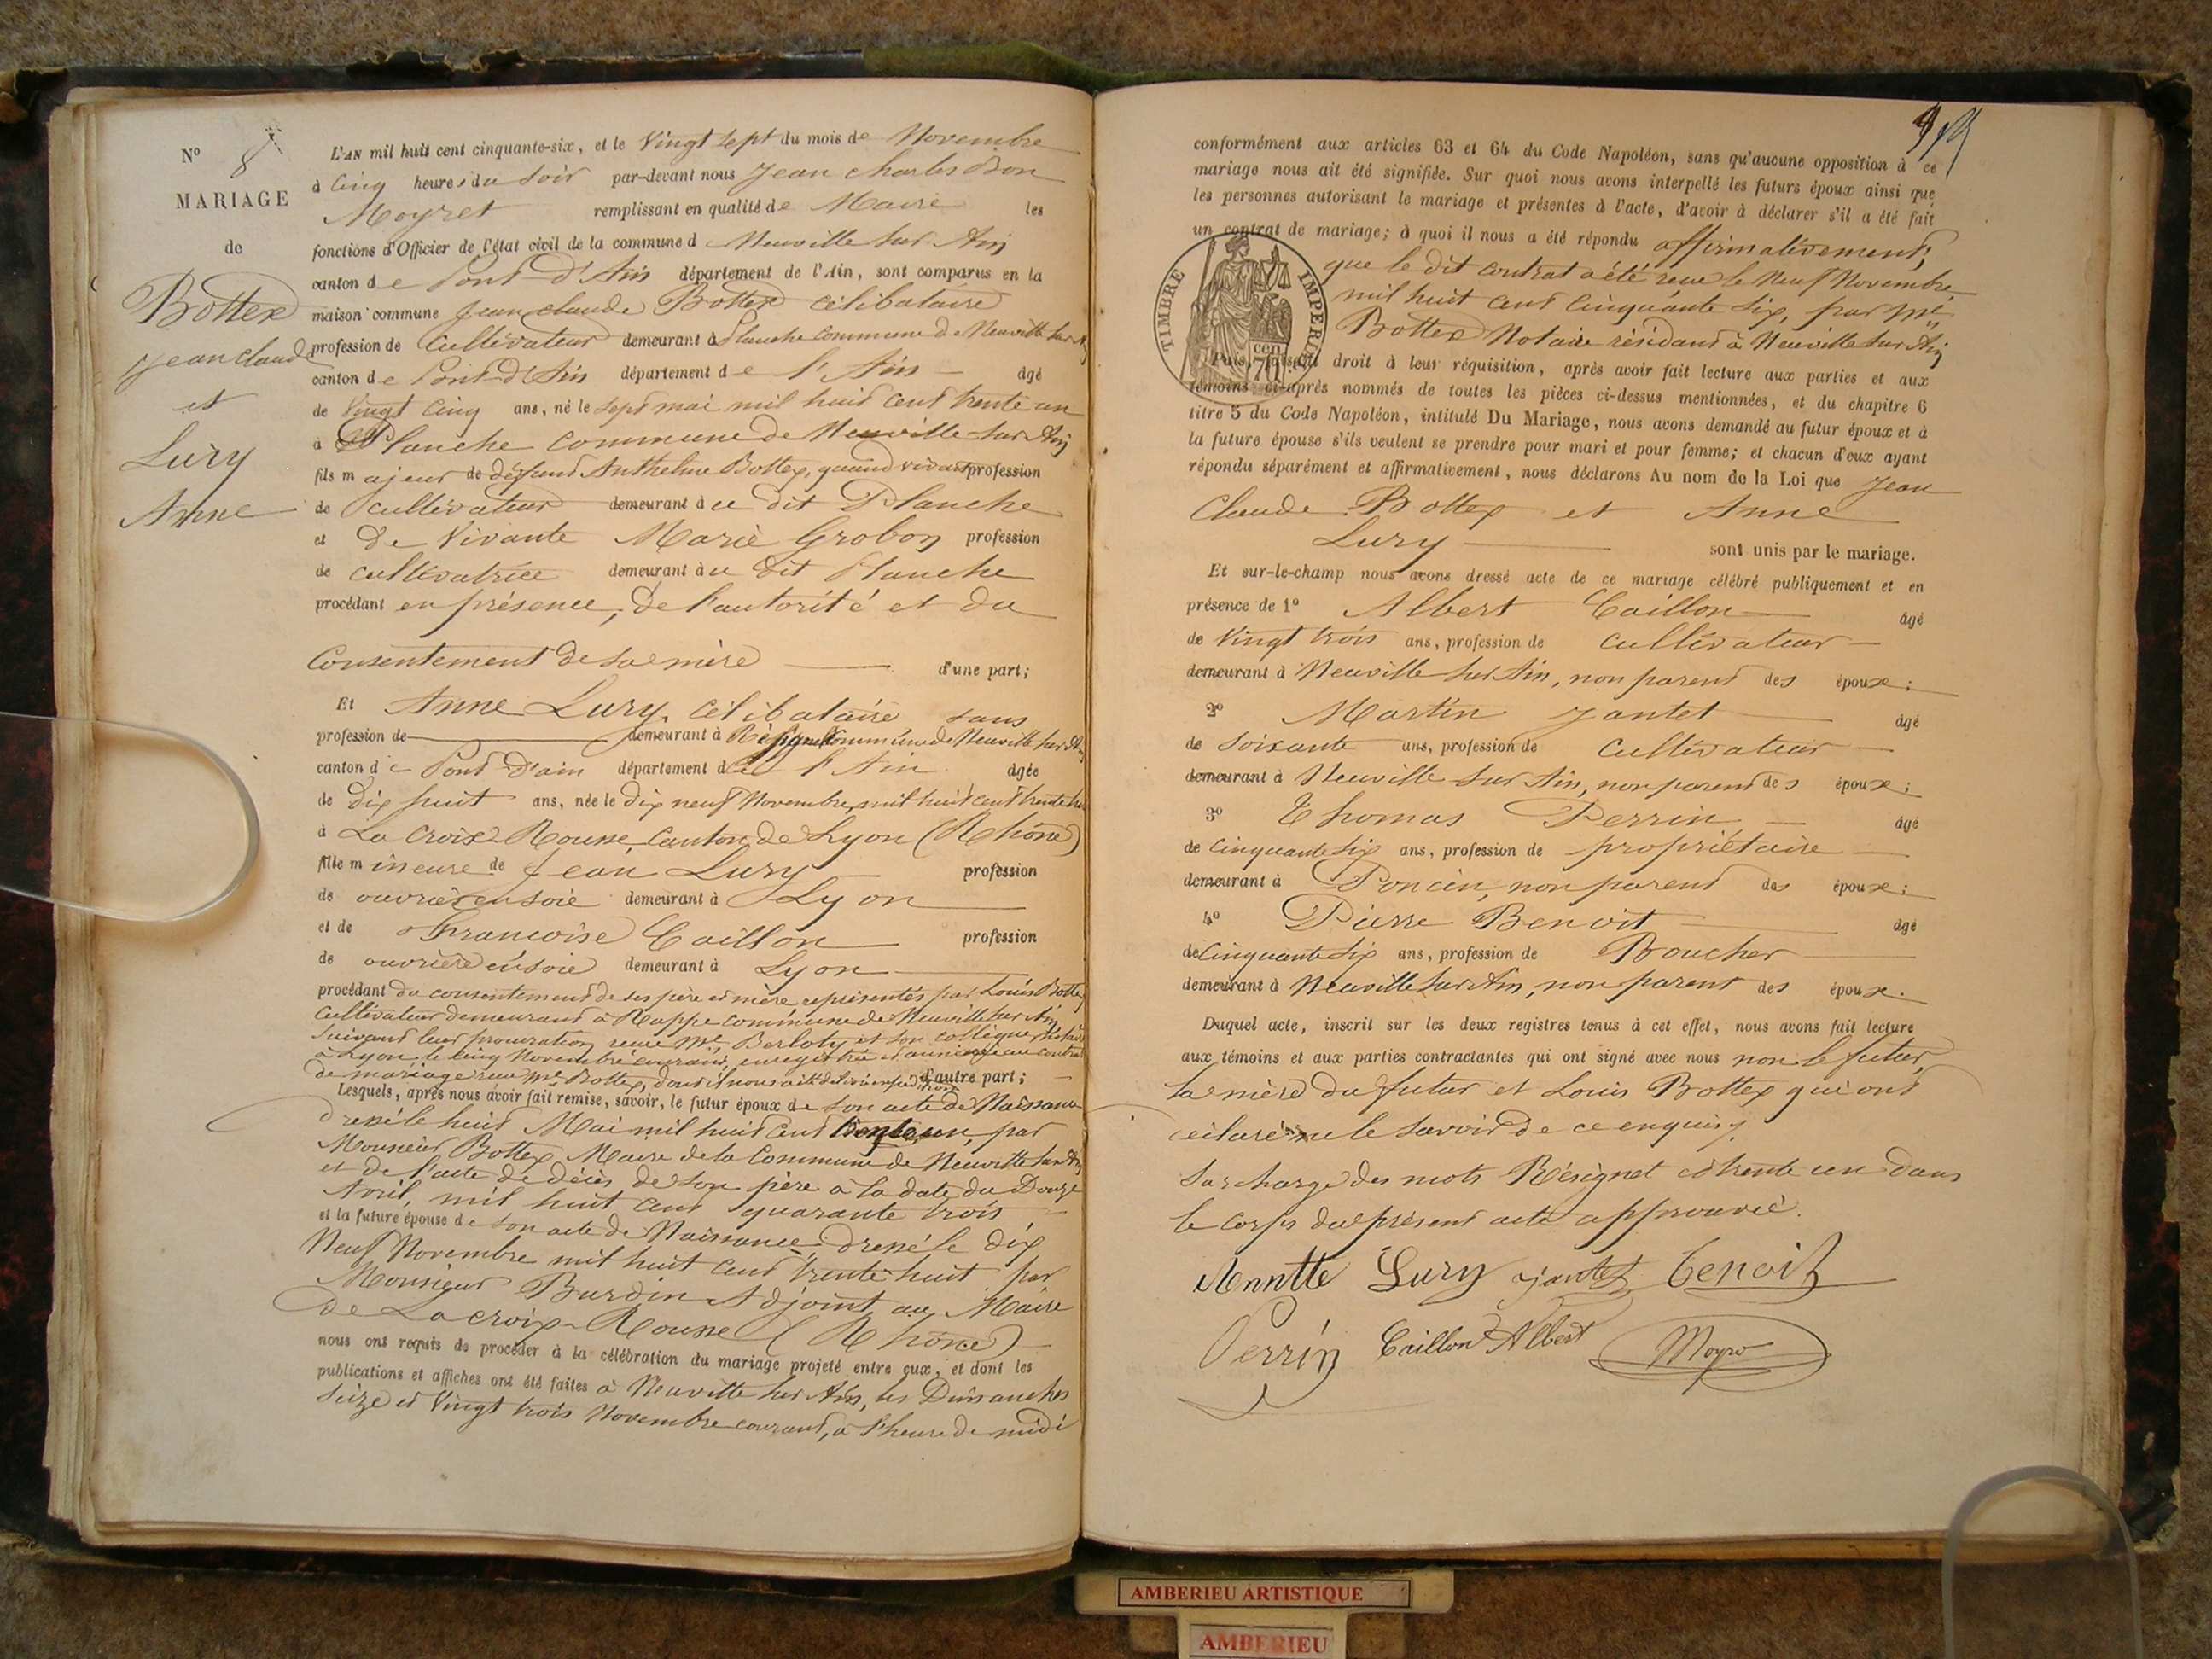 N° 8
MARIAGE
de
Bottex
Jean Claude
et
Lury
Anne
L'AN mil huit cent cinquante-six, et le Vingt sept du mois de Novembre
à Cinq heures du Soir par-devant nous Jean Charles Bon
Moyret remplissant en qualité de Maire les
fonctions d'Officier de l'état civil de la commune d Neuville sur Ain
canton de Pont-d'Ain département de l'Ain, sont comparus en la
maison commune Jean Claude Bottex célibataire
profession de Cultivateur demeurant à Planche Commune de Neuville sur Ain
canton de Pont-d'Ain département de l'Ain âgé
de Vingt Cinq ans, né le sept mai mil huit cent trente un
à Planche commune de Neuville sur Ain
fils majeur de défunt Anthelme Bottex, quand vivait profession
de cultivateur demeurant au dit Planche
et De Vivante Marie Grobon profession
de cultivatrice demeurant au dit Planche
procédant en présence, de l'autorité et du
Consentement de sa mère d'une part;
Et Anne Lury, célibataire sans
profession de demeurant à Résignel Commune de Neuville sur Ain
canton de Pont-d'ain département de l'Ain âgée
de dix huit ans, née le dix neuf Novembre mil huit cent trente huit
à La Croix-Rousse, Canton de Lyon (Rhône)
fille mineure de Jean Lury profession
de ouvrier en soie demeurant à Lyon
et de Françoise Caillon profession
de ouvrière en soie demeurant à Lyon
procédant du consentement de ses père et mère représentés par Louis Bottex
cultivateur demeurant à Rappe commune de Neuville sur Ain
suivant leur procuration reçue Me Berloty et son collègue, Notaires
à Lyon, le cinq Novembre courant, enregistrée et annexée au contrat
de mariage reçu Me Bottex, dont il nous a été délivré d'autre part;
Lesquels, après nous avoir fait remise, savoir, le futur époux de son acte de Naissance
dressé le huit Mai mil huit cent trente un, par
Monsieur Bottex, Maire de la Commune de Neuville sur Ain
et de l'acte de décès de son père à la date du Douze
Avril, mil huit cent quarante trois
et la future épouse de son acte de Naissance, dressé le dix
Neuf Novembre mil huit cent trente huit par
Monsieur Burdin Adjoint au Maire
de La croix-Rousse (Rhône)
nous ont requis de procéder à la célébration du mariage projeté entre eux, et dont les
publications et affiches ont été faites à Neuville sur Ain, les Dimanches
Seize et Vingt trois Novembre courant, à l'heure de midi
conformément aux articles 63 et 64 du Code Napoléon, sans qu'aucune opposition à ce
mariage nous ait été signifiée. Sur quoi nous avons interpellé les futurs époux ainsi que
les personnes autorisant le mariage et présentes à l'acte, d'avoir à déclarer s'il a été fait
un contrat de mariage; à quoi il nous a été répondu affirmativement,
que le dit contrat a été reçu le Neuf Novembre
mil huit cent cinquante six, par Me
Bottex Notaire résidant à Neuville sur Ain
TIMBRE IMPERIAL
70 cen
Puis, faisant droit à leur réquisition, après avoir fait lecture aux parties et aux
témoins ci-après nommés de toutes les pièces ci-dessus mentionnées, et du chapitre 6
titre 5 du Code Napoléon, intitulé Du Mariage, nous avons demandé au futur époux et à
la future épouse s'ils veulent se prendre pour mari et pour femme; et chacun d'eux ayant
répondu séparément et affirmativement, nous déclarons Au nom de la Loi que Jean
Claude Bottex et Anne
Lury sont unis par le mariage.
Et sur-le-champ nous avons dressé acte de ce mariage célébré publiquement et en
présence de 1° Albert Caillon âgé
de Vingt trois ans, profession de cultivateur
demeurant à Neuville sur Ain, non parent des époux;
2° Martin Jantet âgé
de Soixante ans, profession de Cultivateur
demeurant à Neuville sur Ain, non parent des époux;
3° Thomas Perrin âgé
de Cinquante six ans, profession de propriétaire
demeurant à Poncin, non parent des époux;
4° Pierre Benoit âgé
de Cinquante six ans, profession de Boucher
demeurant à Neuville sur Ain, non parent des époux.
Duquel acte, inscrit sur les deux registres tenus à cet effet, nous avons fait lecture
aux témoins et aux parties contractantes qui ont signé avec nous non le futur,
la mère du futur et Louis Bottex qui ont
déclaré ne le savoir de ce enquis.
Surcharge des mots Résignel et trente un dans
le corps du présent acte approuvée.
Anntte Lury Jantet Benoit
Perrin Caillon Albert Moyret
AMBERIEU ARTISTIQUE
AMBERIEU